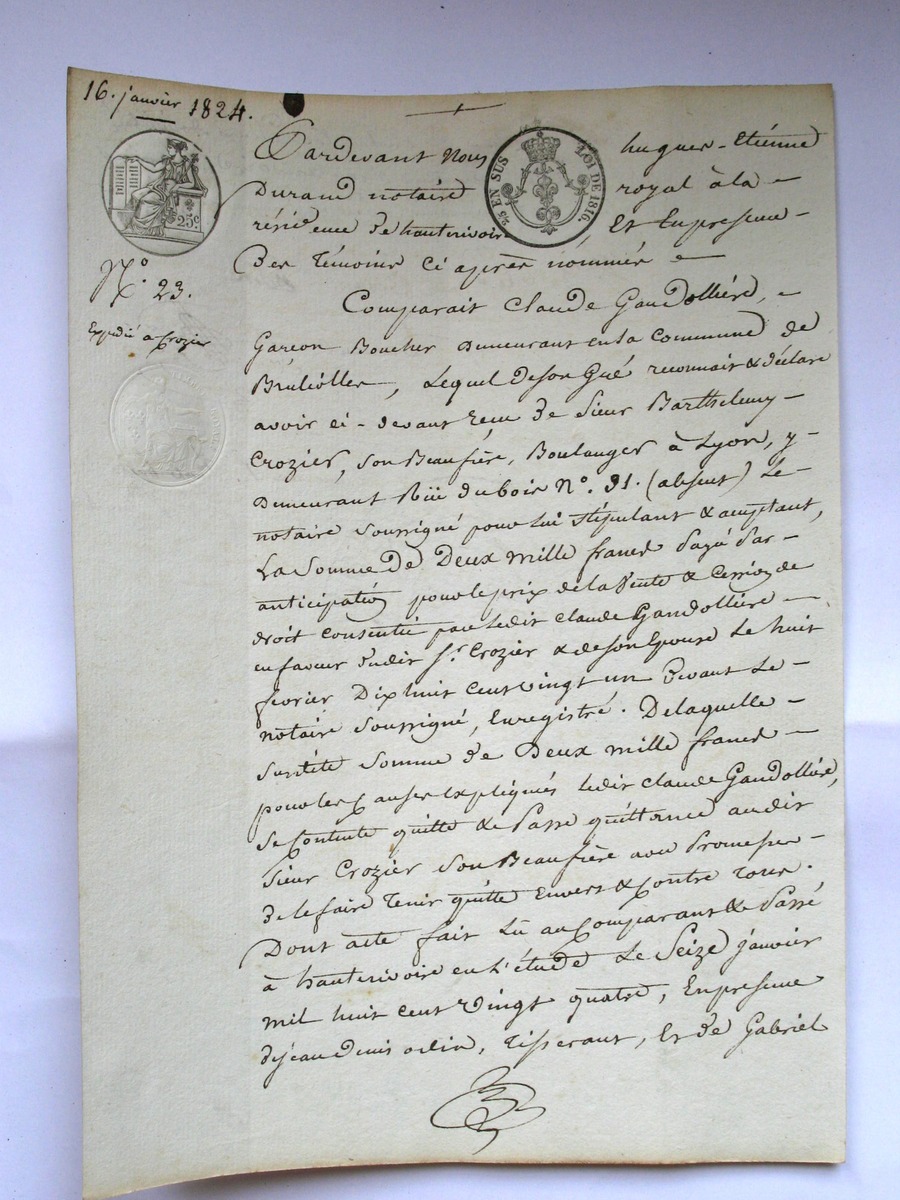 16. janvier 1824.
25c
2/5 EN SUS LOI DE 1816.
N° 23.
Expedié a Crozier
Pardevant Nous hugues-Etienne
Durand notaire royal à la
résidence de hauterivoire, Et En presence
des témoins ci après nommés
Comparait Claude Gaudollière,
Garçon Boucher demeurant en la Commune de
Brulliolles, Lequel de son Gué reconnait & déclare
avoir ci-devant reçu de Sieur Barthelemy
Crozier, son Beaufrère, Boulanger à Lyon, y
demeurant Rüe du bois N°. 31. (absent) Le
notaire soussigné pour lui stipulant & acceptant,
La Somme de Deux mille francs payé par
anticipation pour le prix de la Vente & Cession de
droit consentie par ledit Claude Gaudollière
en faveur dudit Sr. Crozier & de son Epouse Le huit
fevrier Dix huit cent vingt un Devant Le
notaire soussigné, Enregistré. De laquelle
susdite Somme de Deux mille francs
pour les Causes Expliqués ledit Claude Gaudollière,
se Contente quitte & Passe quittance audit
Sieur Crozier son Beaufrère avec Promesse
de le faire tenir quitte Envers & Contre tous.
Dont acte fait Lû au Comparant & Passé
à hauterivoire en L'étude Le Seize janvier
mil huit cent vingt quatre, En presence
de jean Denis odin, tisserant, Et de Gabriel